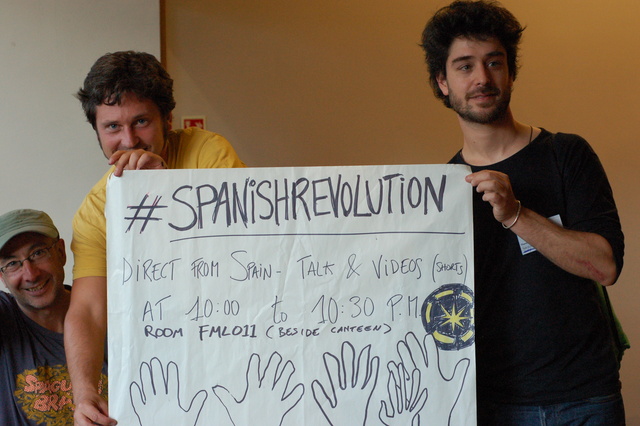 #SPANISHREVOLUTION
DIRECT FROM SPAIN - TALK & VIDEOS (SHORTS)
AT 10:00 to 10:30 P.M.
ROOM FML011 (BESIDE CANTEEN)